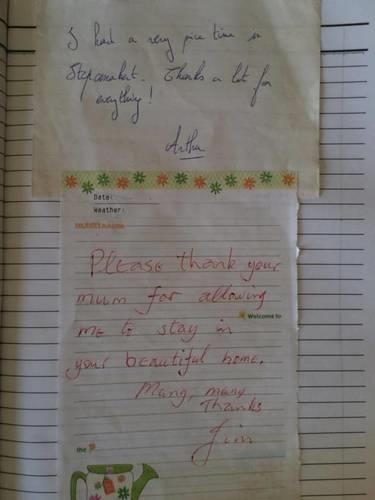 I had a very nice time in
Thanks a lot for
everything!
Arthur
Date:
Weather:
Please thank your
mum for allowing
Welcome to
me to stay in
your beautiful home.
Many, many
Thanks
Jim
the